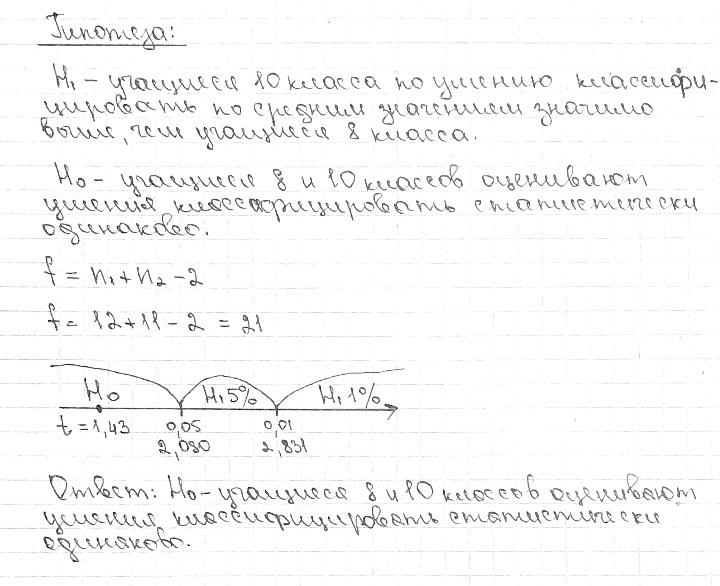 Гипотеза:
H₁ – учащиеся 10 класса по умению классифи-
цировать по средним значениям значимо
выше, чем учащиеся 8 класса.
H₀ – учащиеся 8 и 10 классов оценивают
умения классифицировать статистически
одинаково.
f = n₁ + n₂ – 2
f = 12 + 11 – 2 = 21
H₀ H₁ 5% H₁ 1%
t = 1,43 0,05 0,01
2,080 2,831
Ответ: H₀ – учащиеся 8 и 10 классов оценивают
умения классифицировать статистически
одинаково.